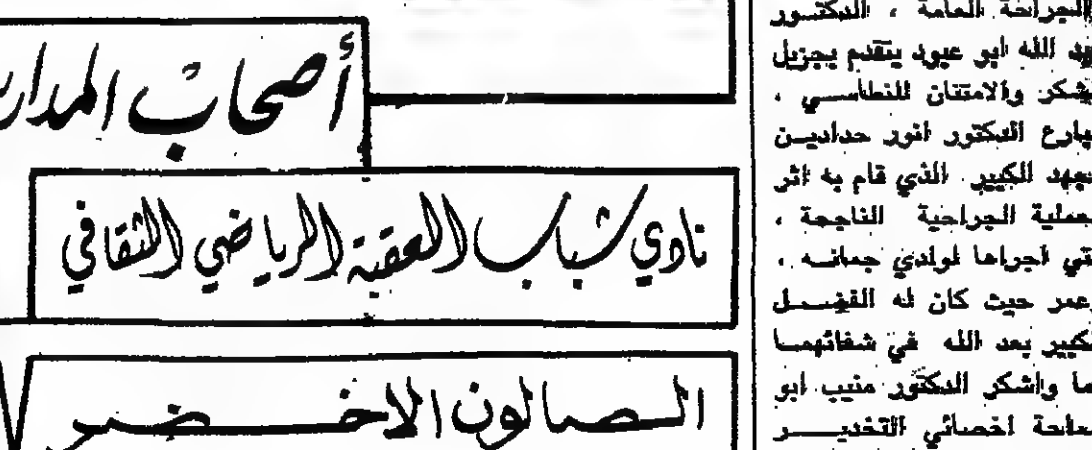 الجراحة العامة ، الدكتور
الله ابو عبود يتقدم بجزيل
والامتنان للنطاسي ،
الدكتور انور حدادين
الكبير الذي قام به اثر
الجراحية الناجحة ،
اجراها لولدي جمانه ،
عمر حيث كان له الفضل
بعد الله في شفائهما
واشكر الدكتور منيب ابو
اخصائي التخدير
أصحاب
نادي شباب العقبة الرياضي الثقافي
الصالون الاخضر